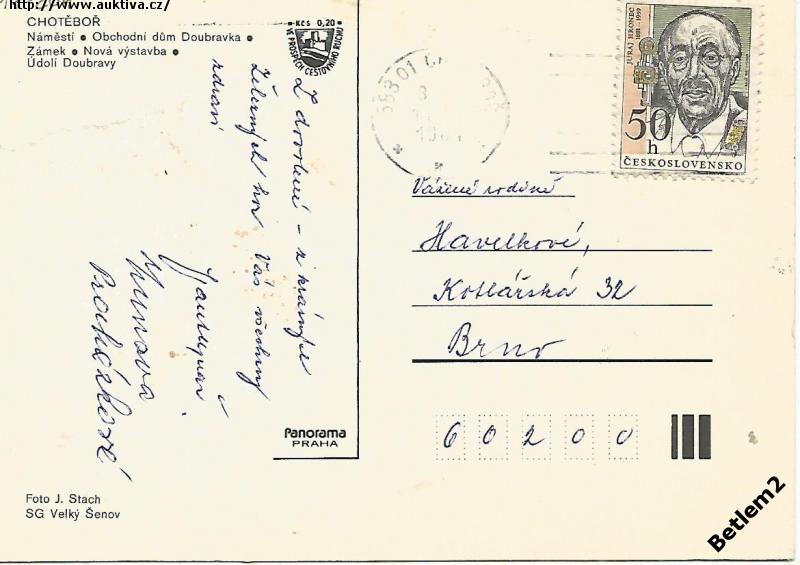 http://www.auktiva.cz/
CHOTĚBOŘ
Náměstí • Obchodní dům Doubravka •
Zámek • Nová výstavba •
Údolí Doubravy
Kčs 0,20
VE PROSPĚCH CESTOVNÍHO RUCHU
Z dovolené – z krásných
Železných hor Vás všechny
zdraví
Procházkovi
583 01
JURAJ HRONEC
1881 - 1959
50 h
ČESKOSLOVENSKO
Vážené rodině
Havelkově,
Kotlářská 32
Brno
60200
Panorama
PRAHA
Foto J. Stach
SG Velký Šenov
Betlem2